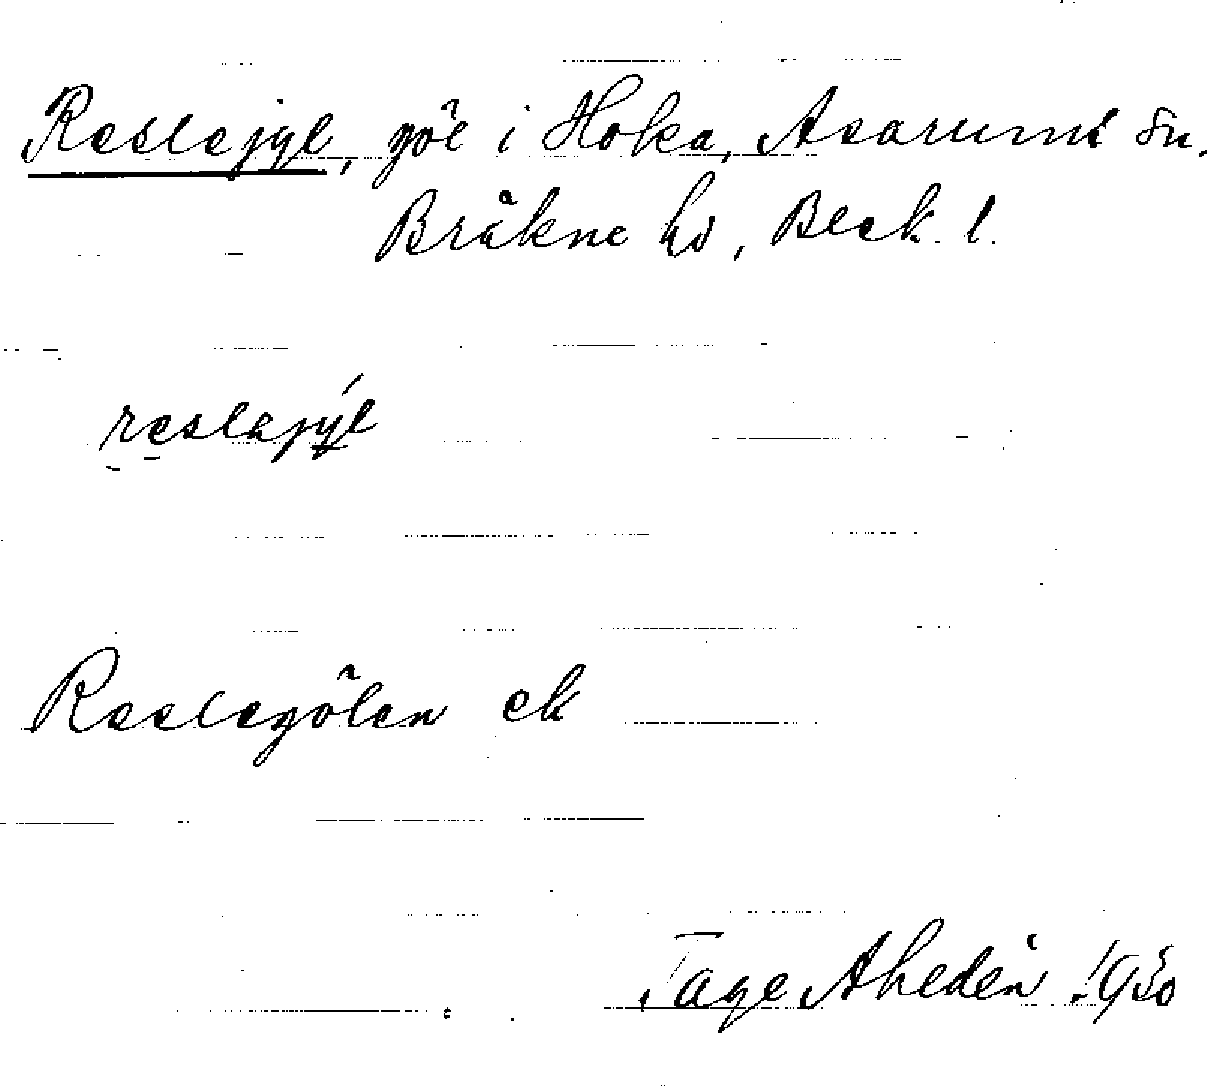 Reslejyl, göl i Hoka, Asarums sn.
Bräkne hd, Bleck. l.
reslajýl
Reslegölen ek
Tage Ahedén 1930